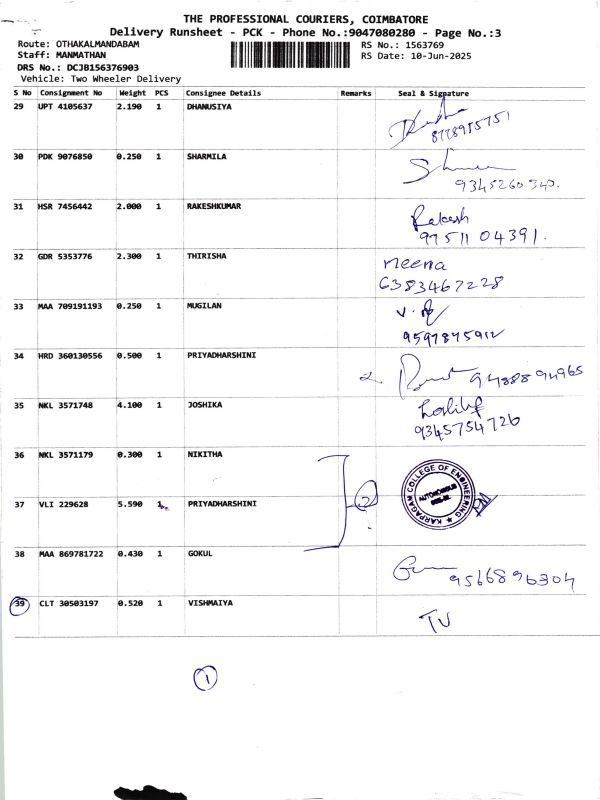 THE PROFESSIONAL COURIERS, COIMBATORE
Delivery Runsheet - PCK - Phone No.:9047080280 - Page No.:3
Route: OTHAKALMANDABAM
RS No.: 1563769
Staff: MANMATHAN
RS Date: 10-Jun-2025
DRS No.: DCJB156376903
Vehicle: Two Wheeler Delivery
S No Consignment No Weight PCS Consignee Details Remarks Seal & Signature
29 UPT 4105637 2.190 1 DHANUSIYA
8778955751
30 PDK 9076850 0.250 1 SHARMILA
9345260340.
31 HSR 7456442 2.000 1 RAKESHKUMAR
Rakesh
97511 04391.
32 GDR 5353776 2.300 1 THIRISHA
meena
6383467228
33 MAA 709191193 0.250 1 MUGILAN
9597875912
34 HRD 360130556 0.500 1 PRIYADHARSHINI
94888 94965
35 NKL 3571748 4.100 1 JOSHIKA
9345754726
36 NKL 3571179 0.300 1 NIKITHA
KARPAGAM COLLEGE OF ENGINEERING
AUTONOMOUS
2
37 VLI 229628 5.590 1 PRIYADHARSHINI
38 MAA 869781722 0.430 1 GOKUL
9566896304
39 CLT 30503197 0.520 1 VISHMAIYA
TV
1